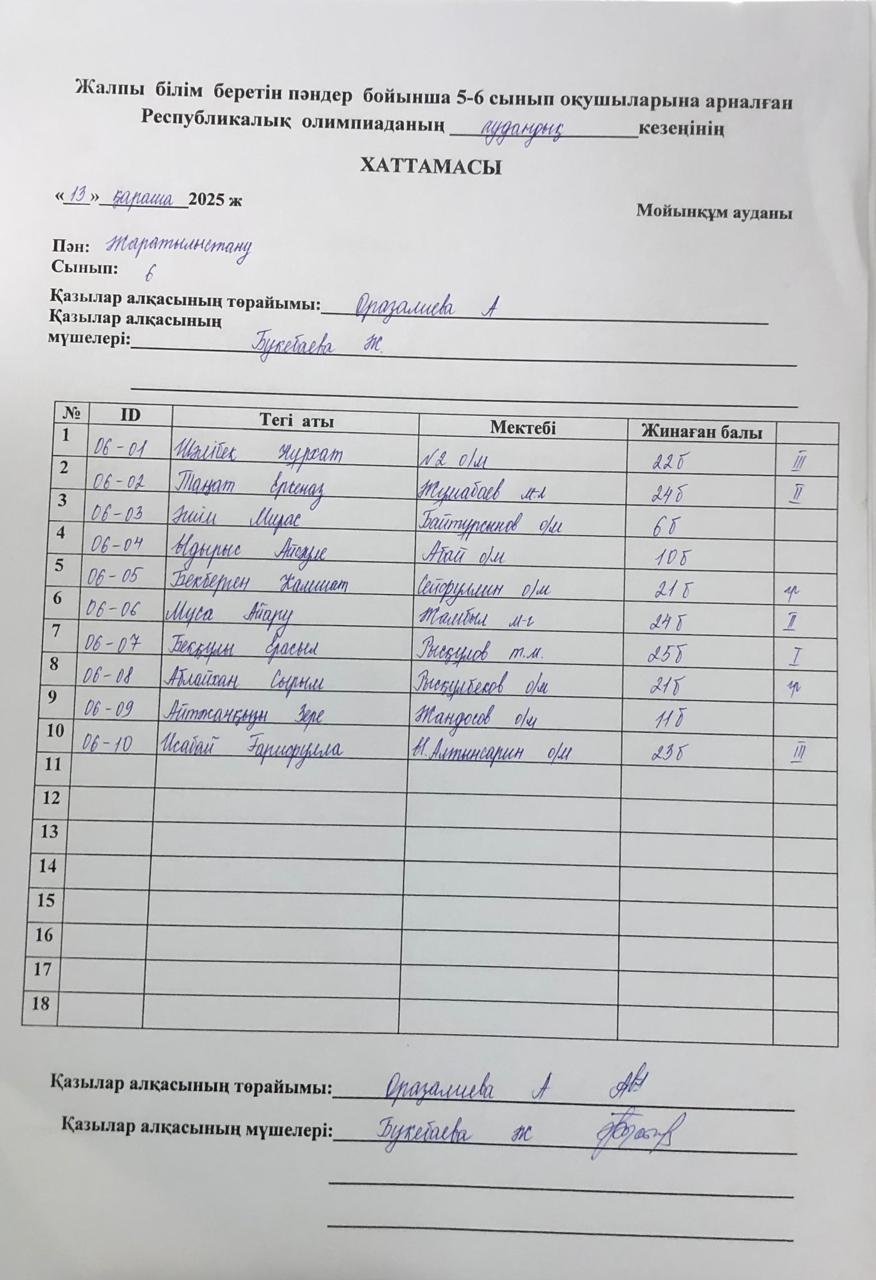 Жалпы білім беретін пәндер бойынша 5-6 сынып оқушыларына арналған
Республикалық олимпиаданың аудандық кезеңінің
ХАТТАМАСЫ
«13» қараша 2025 ж
Мойынқұм ауданы
Пән: Жаратылыстану
Сынып: 6
Қазылар алқасының төрайымы: Оразалиева А
Қазылар алқасының
мүшелері: Букебаева Ж.
№ ID Тегі аты Мектебі Жинаған балы
1 06-01 Нұрхат №2 о/м 22б III
2 06-02 Таңат Еркеназ Жумабаев м-л 24б II
3 06-03 Мирас Байтурсынов о/м 6б
4 06-04 Ыдырыс Абай о/м 10б
5 06-05 Бекберген Қамшат Сейфуллин о/м 21б гр
6 06-06 Муса Айару Жамбыл м-г 24б II
7 06-07 Беққұлы Ерасыл Рысқұлов т.м. 25б I
8 06-08 Абылайхан Сырым Рысқұлбеков о/м 21б гр
9 06-09 Айтжанқызы Зере Жандосов о/м 11б
10 06-10 Исабай Ғарифулла Ы.Алтынсарин о/м 23б III
11
12
13
14
15
16
17
18
Қазылар алқасының төрайымы: Оразалиева А
Қазылар алқасының мүшелері: Букебаева Ж